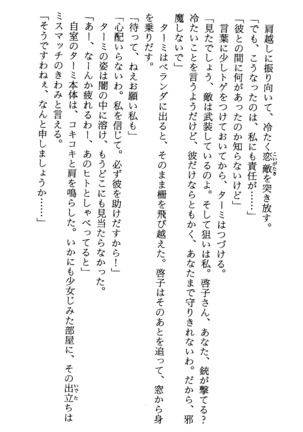 肩越しに振り向いて、冷たく恋敵を突き放す。
「でも、こうなったのは、私にも責任が……」
「彼との間に何があったのか知らないけど」
言葉に少しトゲをつけておいてから、ターミはつづける。
「見たでしょう、敵は武装しているのよ。そして狙いは私。啓子さん、あなた、銃が撃てる?
冷たいことを言うようだけど、彼だけならともかく、あなたまで守りきれないわ。だから、邪
魔しないで」
ターミはベランダに出ると、そのまま柵を飛び越えた。啓子はそのあとを追って、窓から身
を乗りだす。
「待って、ねえお願い私も」
「心配いらないわ。私を信じて。必ず彼を助けだすから!」
ターミの姿は闇の中に溶け、もうどこにも見当たらなかった。
「あー、なーんか疲れるわー、あのヒトとしゃべってると」
自室のターミ本体は、コキコキと肩を鳴らした。いかにも少女じみた部屋に、その出立ちは
ミスマッチのきわみと言える。
「そうですわねえ、なんと申しましょうか……」